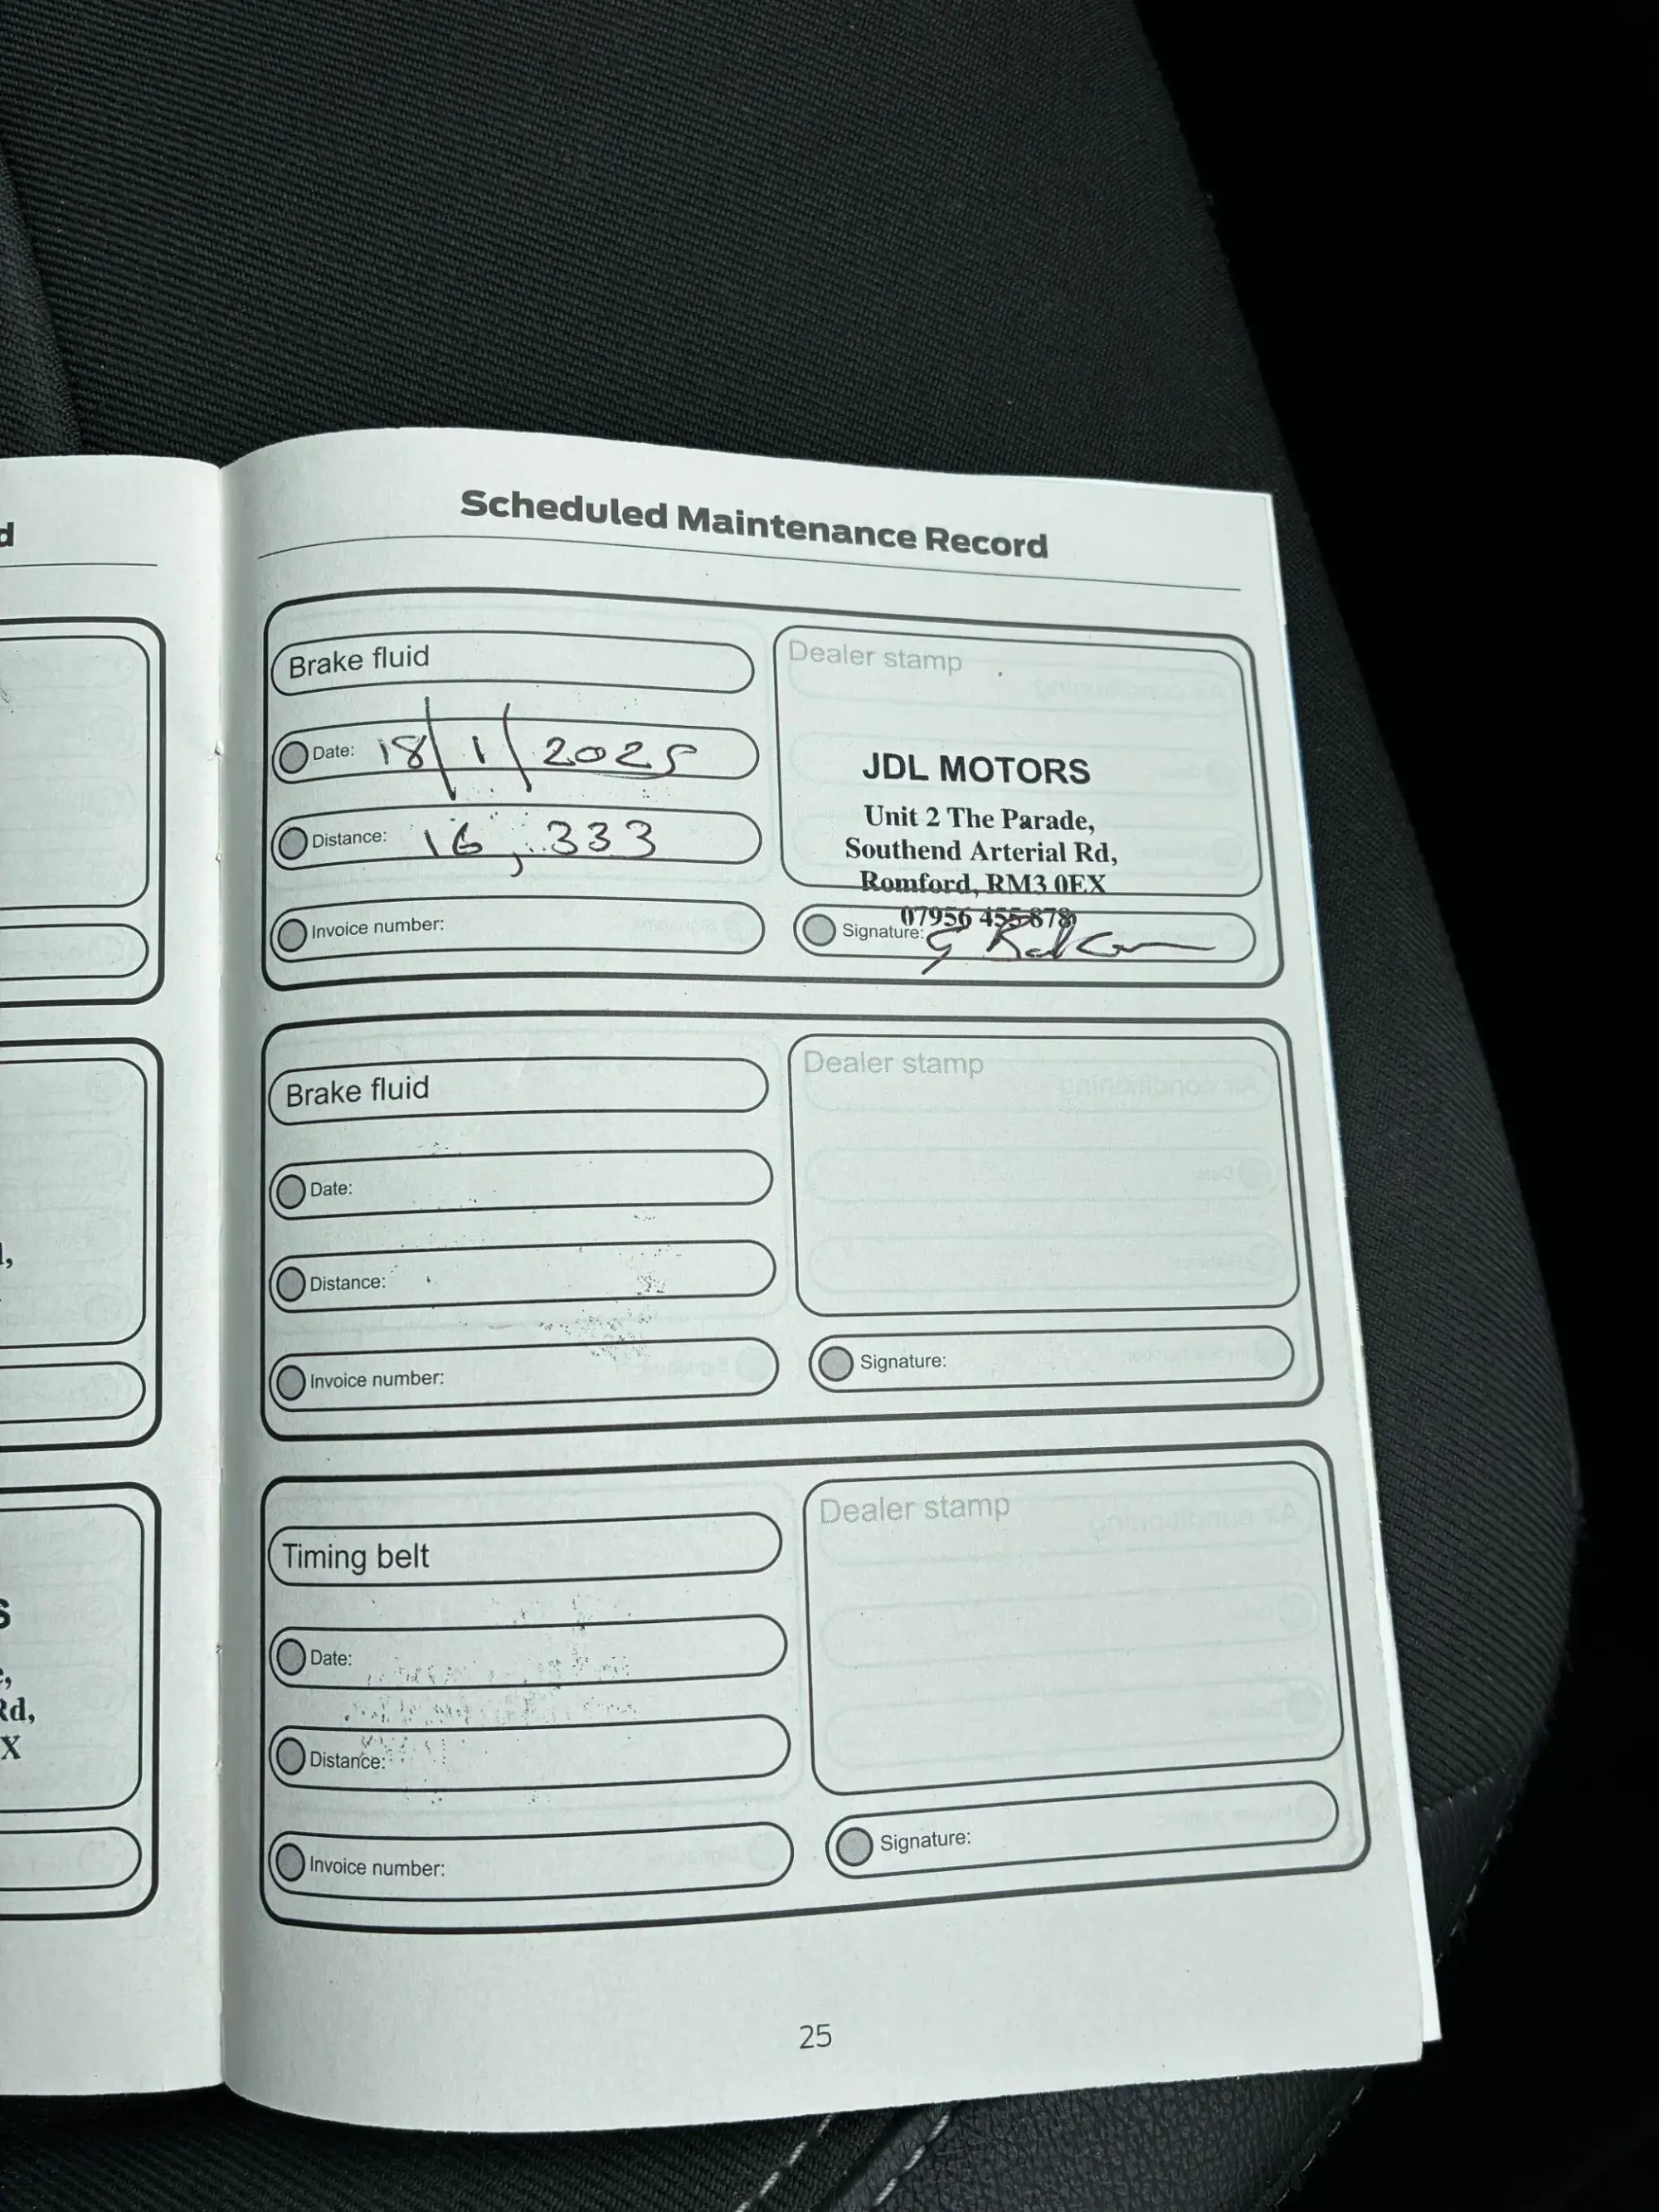 d
Scheduled Maintenance Record
Brake fluid
Dealer stamp
Date: 18/1/2025
JDL MOTORS
Unit 2 The Parade,
Southend Arterial Rd,
Romford, RM3 0EX
07956 455878
Distance: 16,333
Invoice number:
Signature:
Brake fluid
Dealer stamp
Date:
Distance:
Invoice number:
Signature:
Timing belt
Dealer stamp
Date:
Distance:
Invoice number:
Signature:
Rd,
X
25